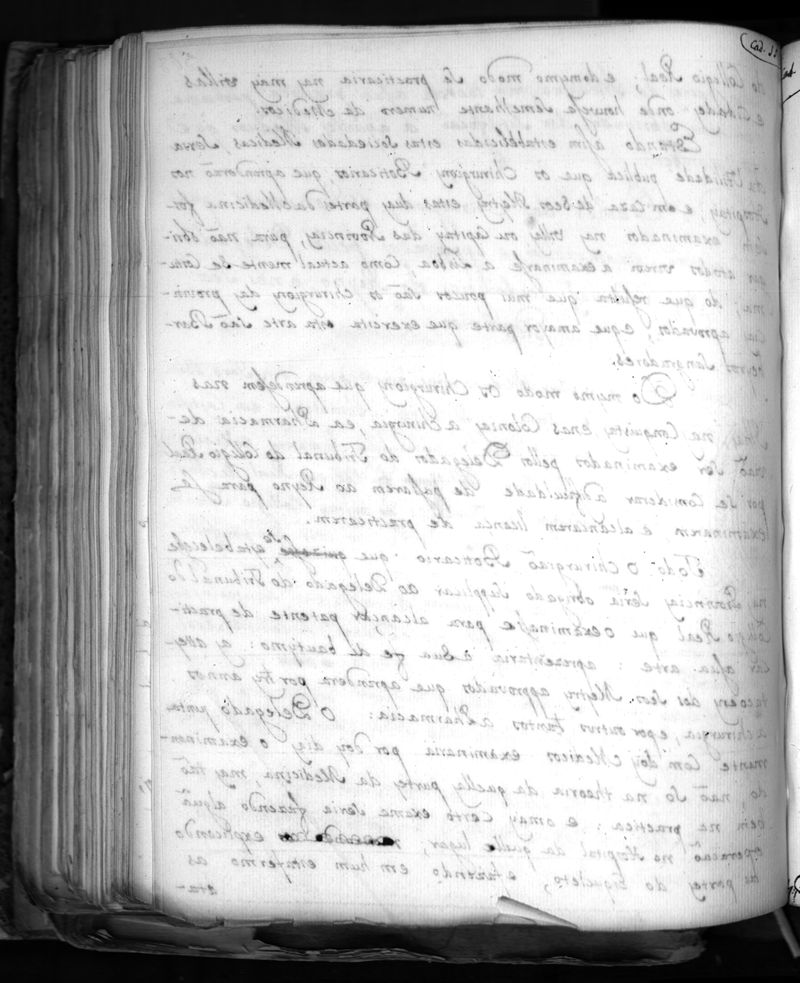 do Collegio Real; e domesmo modo se practicaria nas mays villas
e Cidades onde houvesse semelhante numero de Medicos.
Estando assim estabelecidas estas Sociedades Medicas seria
da utilidade publica que os Chirurgions Boticarios que aprenderaõ nos
Hospitays, e em Caza de Seos Mestres estas duas partes da Medicina fos-
sem examinados nas villas ou Capitays das Provincias, para naõ obri-
gar atodos virem a examinarse a Lisboa, como actualmente se custu-
ma; do que resulta que mui poucos saõ os Chirurgions das provin-
cias aprovados; e que amayor parte que exercita esta arte saõ Bar-
beyros Sangradores.
Do mesmo modo os Chirurgions que aprendessem nas
Ilhas, nas Conquistas, e nas Colonias a Chirurgia, e a Pharmacia de-
viaõ ser examinados pellos Delegados do Tribunal do Collegio Real
por se Considerar a dificuldade de passarem ao Reyno para se
examinarem e alcansarem licenca de practicarem.
Todo o Chirurgiaõ Boticario que estabelecese
nas Provincias seria obrigado supplicar ao Delegado do Tribunal do
Collegio Real que o examinasse para alcançar patente de practi-
car a sua arte: aprezentaria a sua fe de bautismo: as
dos seos Mestres approvados que aprendera por tres annos
a Chirurgia, e por outros tantos a Pharmacia: O Delegado junta-
mente com doys Medicos examinaria por doys dias o examinan-
do, naõ so na theoria da quella parte da Medicina, mas taõ
bem na practica: e o mays certo exame seria fazendo algũa
operacaõ no Hospital da quelle lugar, explicando
as partes do Esqueleto, e fazendo em hum enfermo as
ata-